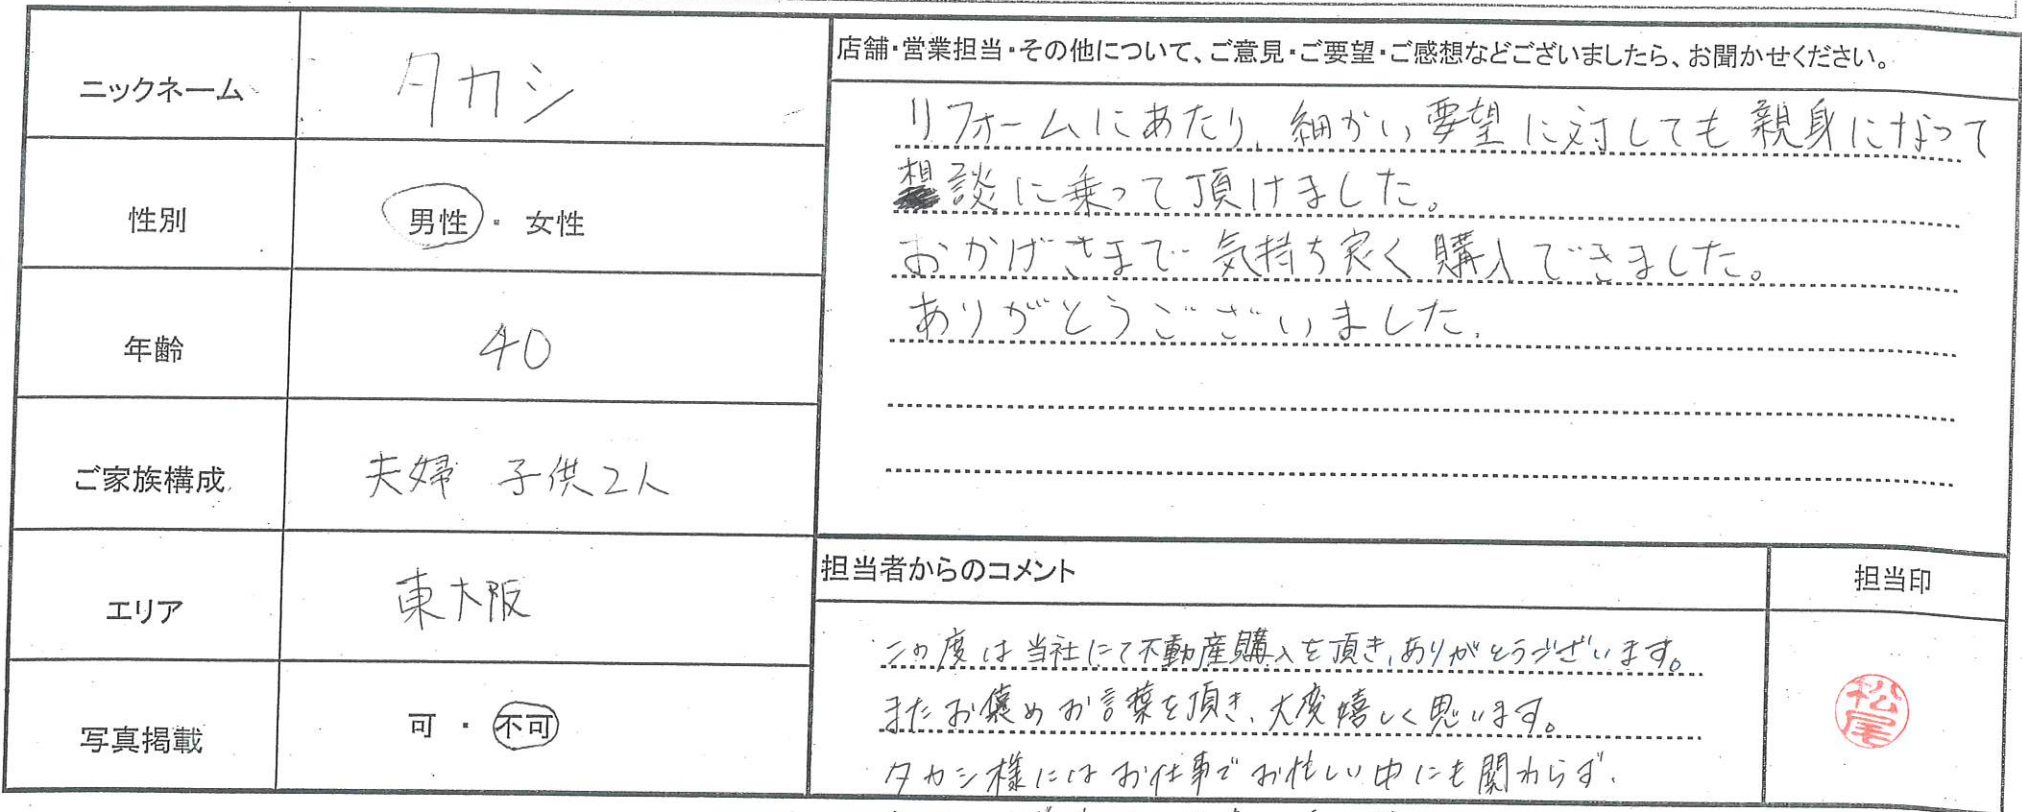 ニックネーム
タカシ
性別
男性 ・ 女性
年齢
40
ご家族構成
夫婦 子供2人
エリア
東大阪
写真掲載
可 ・ 不可
店舗・営業担当・その他について、ご意見・ご要望・ご感想などございましたら、お聞かせください。
リフォームにあたり、細かい要望に対しても親身になって
相談に乗って頂けました。
おかげさまで気持ち良く購入できました。
ありがとうございました.
担当者からのコメント
担当印
この度は当社にて不動産購入を頂き、ありがとうございます。
またお褒めお言葉を頂き、大変嬉しく思います。
タカシ様にはお仕事でお忙しい中にも関わらず、
松尾